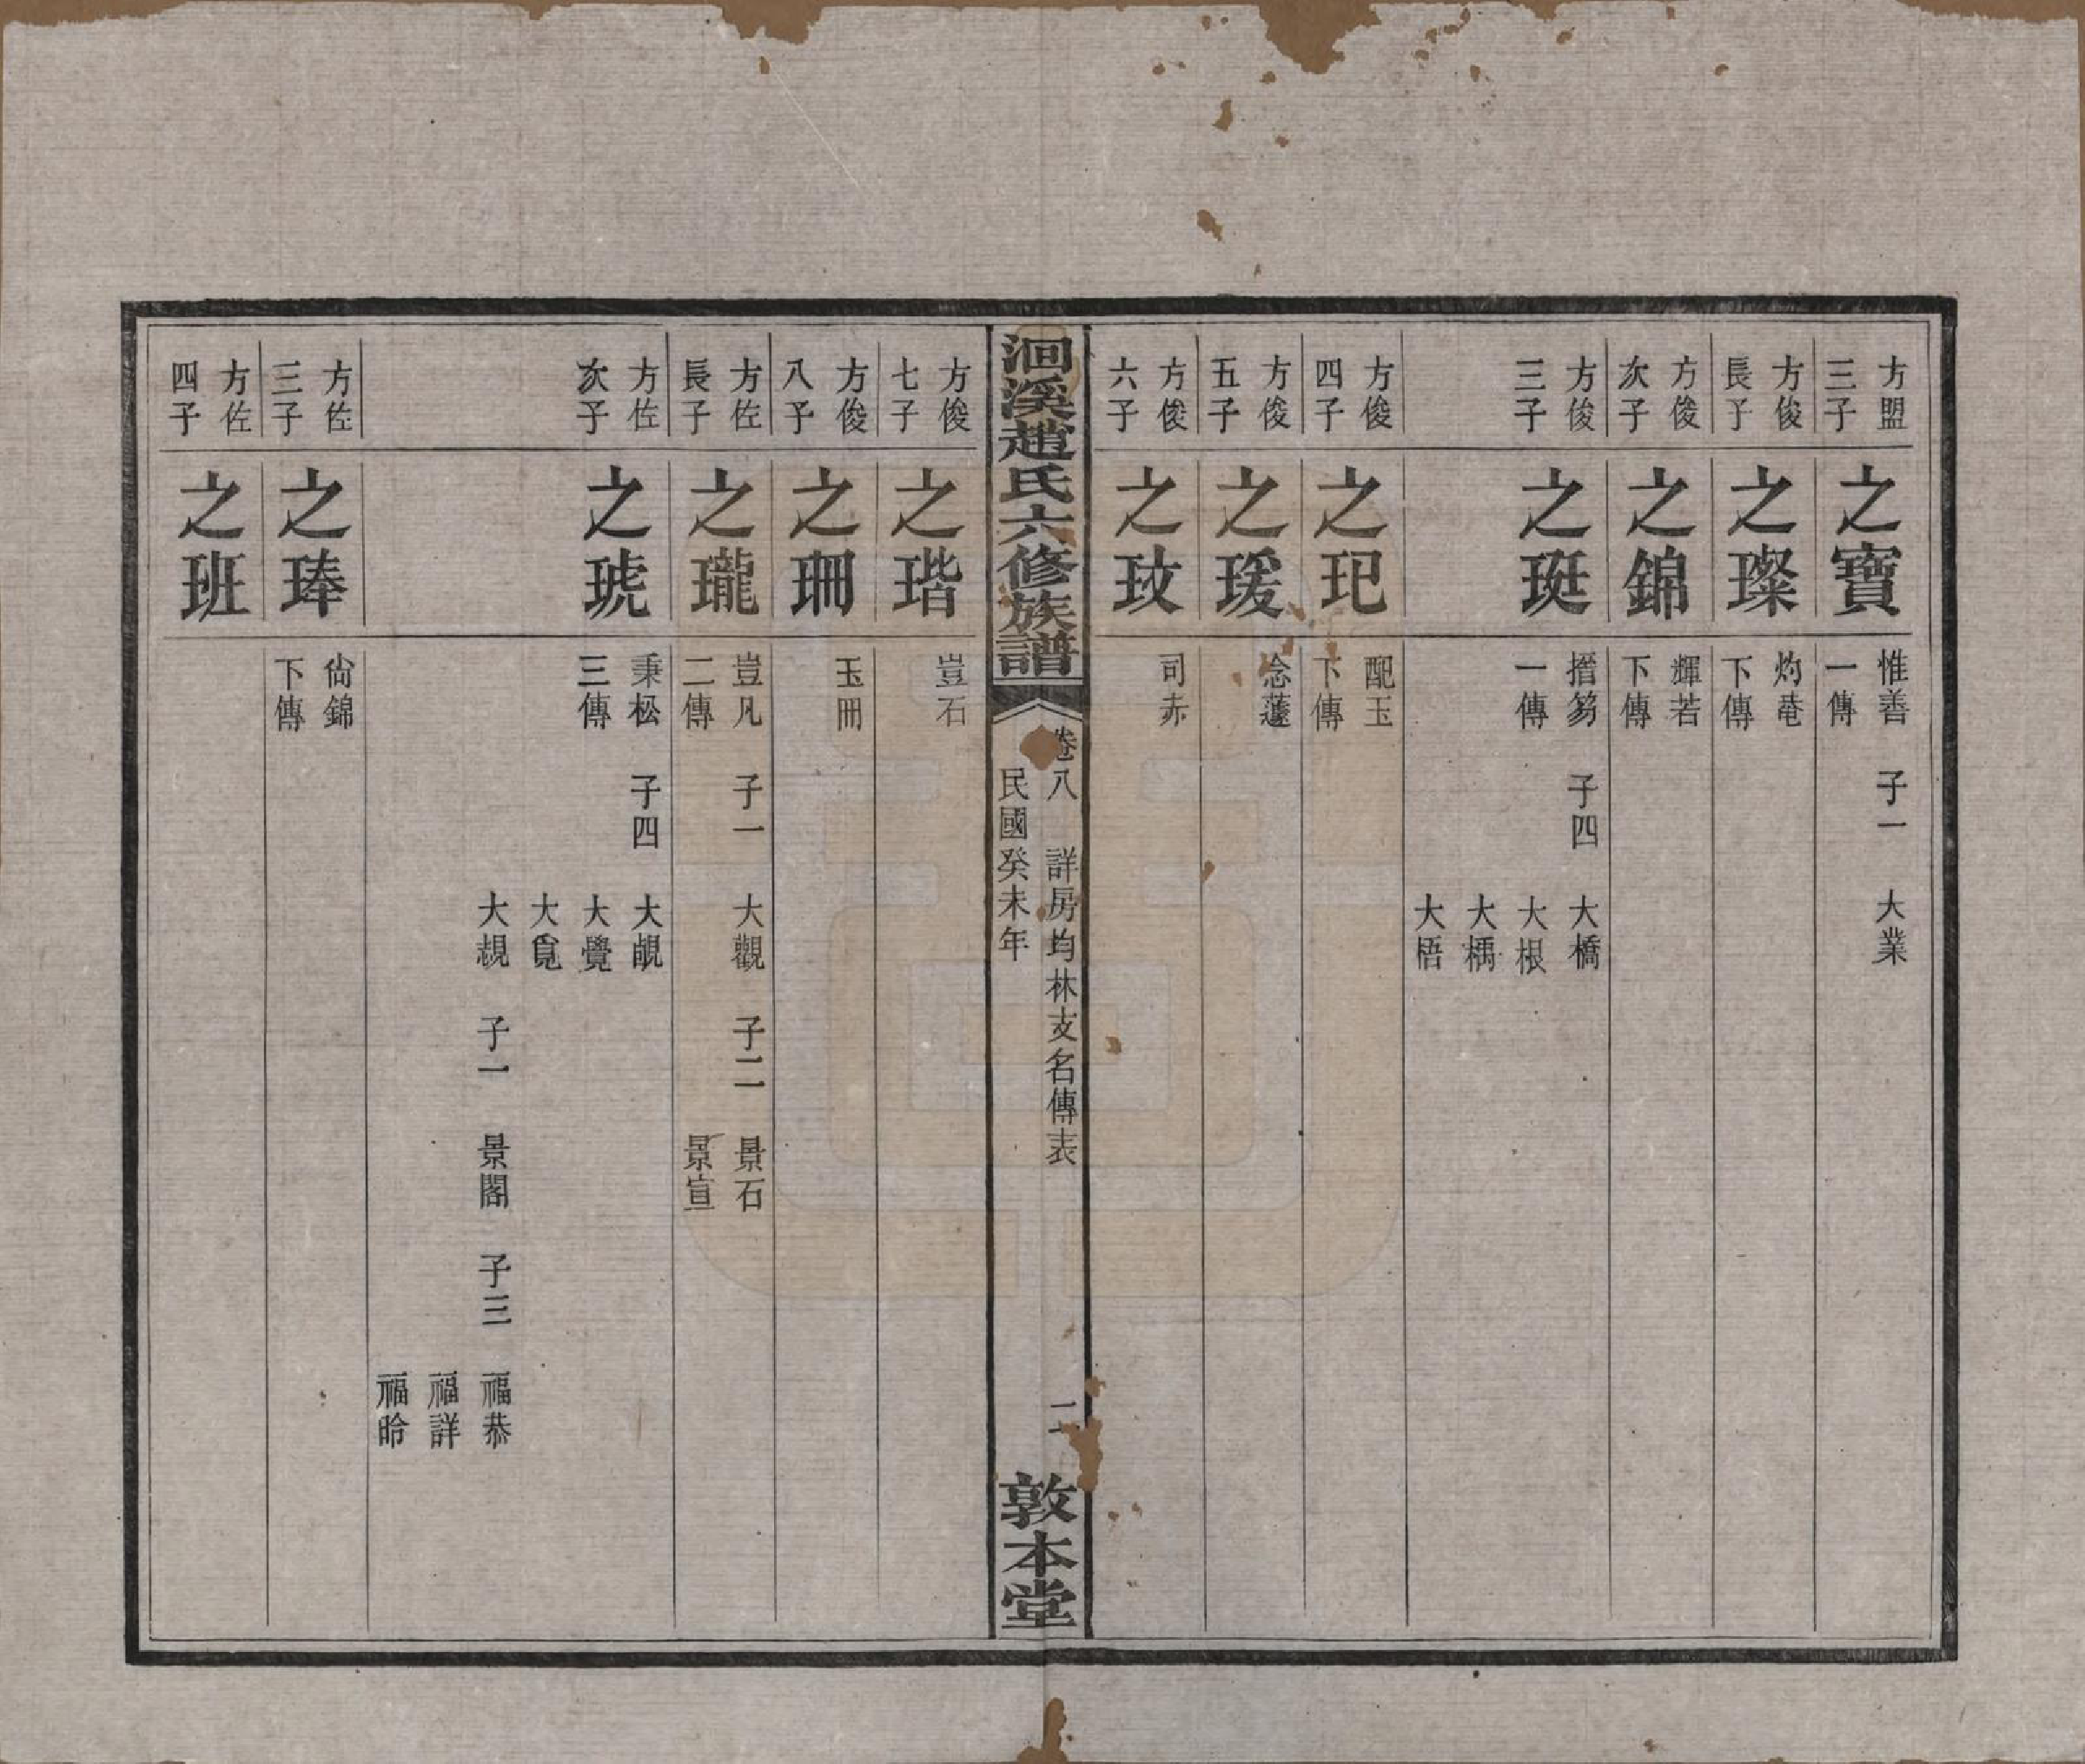 方盟
三子
之寶
惟善 子一 大業
一傳
方俊
長子
之璨
灼菴
下傳
方俊
次子
之錦
輝若
下傳
方俊
三子
之珽
搢笏 子四 大橋
一傳 大根
大楀
大梧
方俊
四子
之玘
配玉
下傳
方俊
五子
之瑗
念蘧
方俊
六子
之玟
司赤
洄溪趙氏六修族譜
卷八 詳房均林支名傳表 二
民國癸未年
敦本堂
方俊
七子
之瑎
豈石
方俊
八子
之珊
玉冊
方佐
長子
之瓏
豈凡 子一 大觀 子二 景石
二傳 景宣
方佐
次子
之琥
秉松 子四 大覰
三傳 大覺
大覓
大覞 子一 景閣 子三 福恭
福詳
福昤
方佐
三子
之琫
尙錦
下傳
方佐
四子
之班